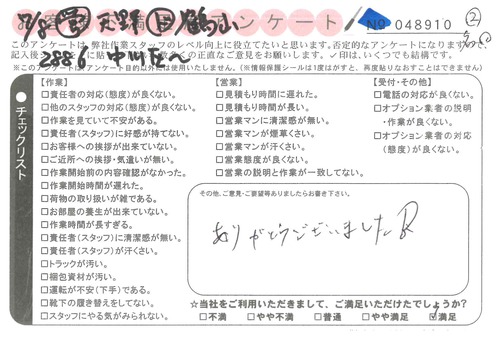 アンケート
No 048910
このアンケートは、弊社作業スタッフのレベル向上に役立てたいと思います。否定的なアンケートになりますので、
記入後
の正直なご意見をお願いします。✓印は、いくつでも結構です。
※このアンケートは、アンケート目的以外には使用いたしません。(※情報保護シールは1度はがすと、再度貼りなおすことはできません)
チェックリスト
【作業】
□責任者の対応(態度)が良くない。
□他のスタッフの対応(態度)が良くない。
□作業を見ていて不安がある。
□責任者(スタッフ)に好感が持てない。
□お客様への挨拶が出来ていない。
□ご近所への挨拶・気遣いが無い。
□作業開始前の内容確認がなかった。
□作業開始時間が遅れた。
□荷物の取り扱いが雑である。
□お部屋の養生が出来ていない。
□作業時間が長すぎる。
□責任者(スタッフ)に清潔感が無い。
□責任者(スタッフ)が汗くさい。
□トラックが汚い。
□梱包資材が汚い。
□運転が不安(下手)である。
□靴下の履き替えをしてない。
□スタッフにやる気がみられない。
【営業】
□見積もり時間に遅れた。
□見積もり時間が長い。
□営業マンに清潔感が無い。
□営業マンが煙草くさい。
□営業マンが汗くさい。
□営業態度が良くない。
□営業の説明と作業が一致してない。
【受付・その他】
□電話の対応が良くない。
□オプション業者の説明
・作業が良くない。
□オプション業者の対応
(態度)が良くない。
その他、ご意見・ご要望等ありましたらお書き下さい。
ありがとうございました
☆当社をご利用いただきまして、ご満足いただけたでしょうか?
□不満 □やや不満 □普通 □やや満足 ☑満足